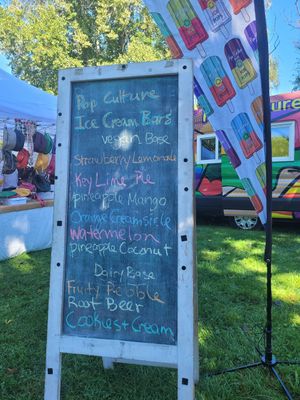 Pop Culture
Ice Cream Bars
Vegan Base
Strawberry Lemonade
Key Lime Pie
Pineapple Mango
Orange Creamsicle
Watermelon
Pineapple Coconut
Dairy Base
Fruity Pebble
Root Beer
Cookies + Cream